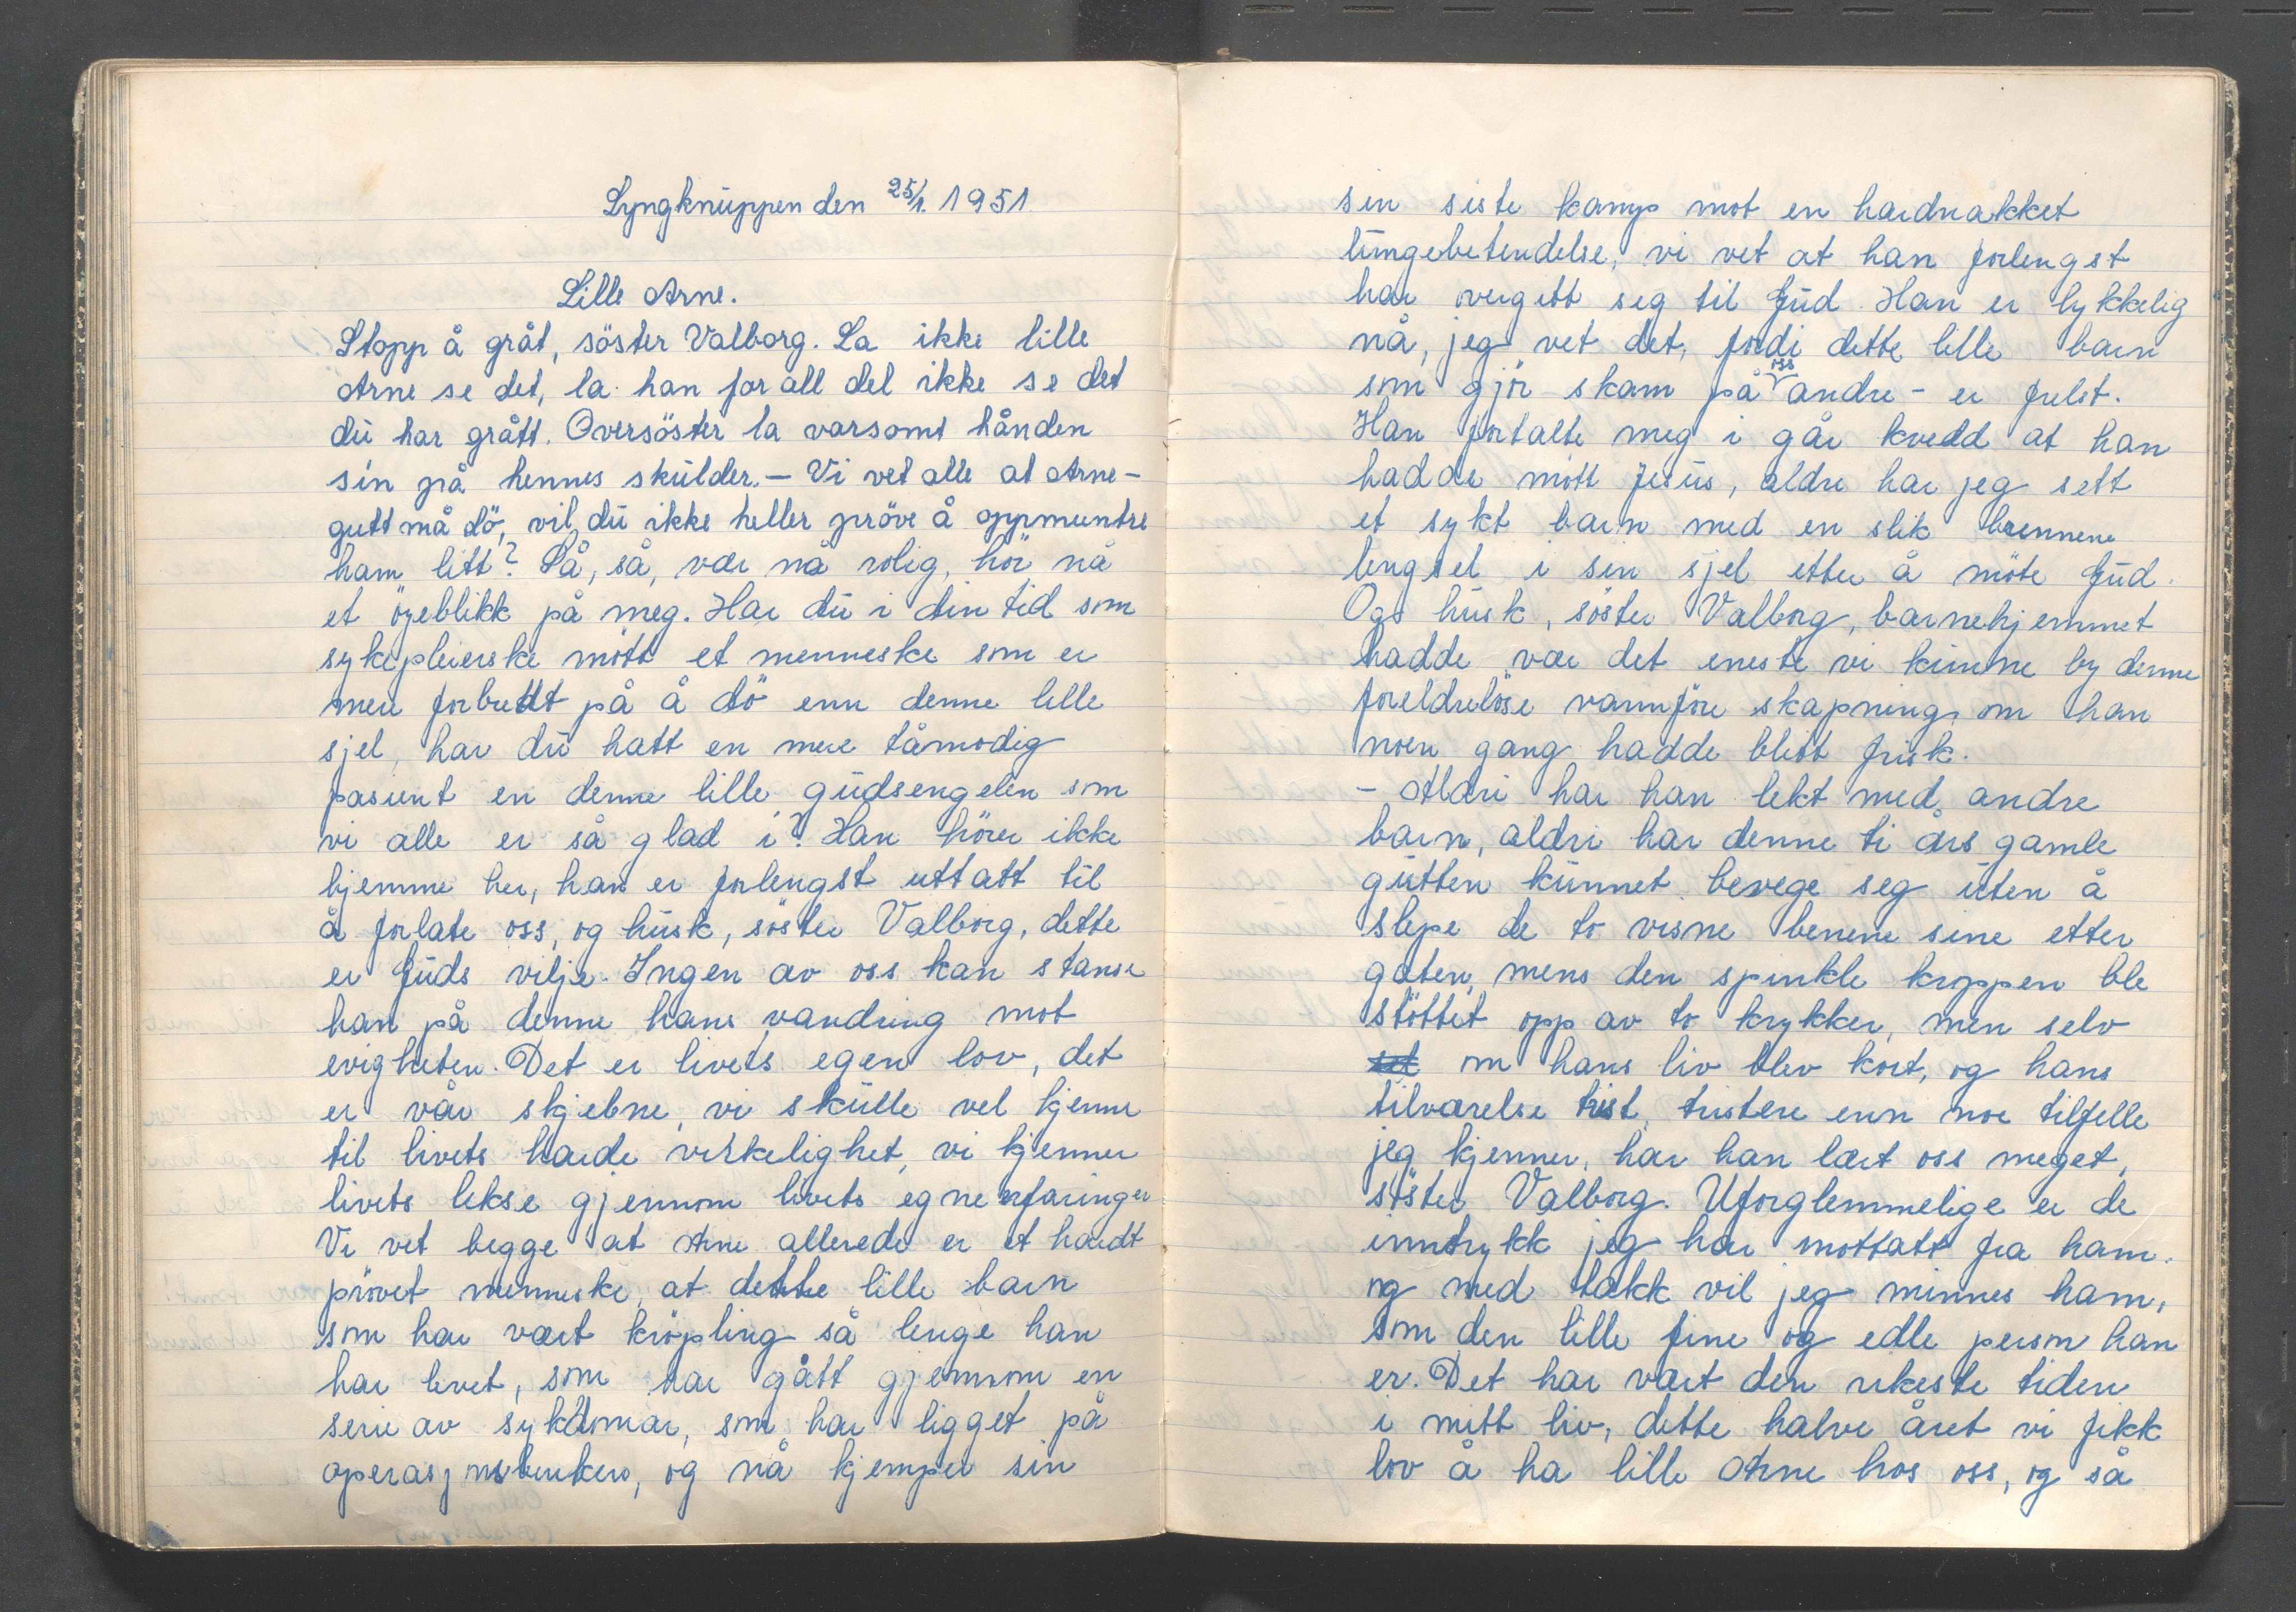 Lyngknuppen den 25/1. 1951.
Lille Arne.
Stopp å gråt, söster Valborg. La ikke lille
Arne se det, la han for all del ikke se det
du har grått. Oversöster la varsomt hånden
sin på hennes skulder. — Vi vet alle at Arne-
gutt må dö, vil du ikke heller pröve å oppmuntre
ham litt? Så, så, vær nå rolig, hör nå
et öyeblikk på meg. Har du i din tid som
sykepleierske mött et menneske som er
mer forbredt på å dö enn denne lille
sjel, har du hatt en mere tåmodig
pasient en denne lille gudsengelen som
vi alle er så glad i? Han hörer ikke
hjemme her, han er forlengst uttatt til
å forlate oss, og husk, söster Valborg, dette
er Guds vilje. Ingen av oss kan stanse
han på denne hans vandring mot
evigheten. Det er livets egen lov, det
er vår skjebne, vi skulle vel kjenne
til livets harde virkelighet, vi kjenner
livets lekse gjennom livets egne erfaringer
Vi vet begge at Arne allerede er et hardt
prövet menneske, at dette lille barn
som har vært kröpling så lenge han
har levet, som har gått gjennom en
serie av sykdomar, som har ligget på
operasjonsbenken, og nå kjemper sin
sin siste kamp mot en hardnakket
lungebetendelse, vi vet at han forlengst
har overgitt seg til Gud. Han er lykkelig
nå, jeg vet det, fordi dette lille barn
som gjör skam på oss andre - er frelst.
Han fortalte meg i går kvedd at han
hadde mött Jesus, aldri har jeg sett
et sykt barn med en slik brennene
lengsel i sin sjel etter å möte Gud.
Ogs husk, söster Valborg, barnehjemmet
hadde vær det eneste vi kunne by denne
foreldrelöse vannföre skapning, om han
noen gang hadde blitt frisk.
- Aldri har han lekt med andre
barn, aldri har denne ti års gamle
gutten kunnet bevege seg uten å
slepe de to visne benene sine etter
gaten, mens den spinkle kroppen ble
stöttet opp av to krykker, men selv
om hans liv blev kort, og hans
tilværelse trist, tristere enn noe tilfelle
jeg kjenner, har han lært oss meget,
söster Valborg. Uforglemmelige er de
inntrykk jeg har mottatt fra ham.
og med takk vil jeg minnes ham,
som den lille fine og edle person han
er. Det har vært den rikeste tiden
i mitt liv, dette halve året vi fikk
lov å ha lille Arne hos oss, og så